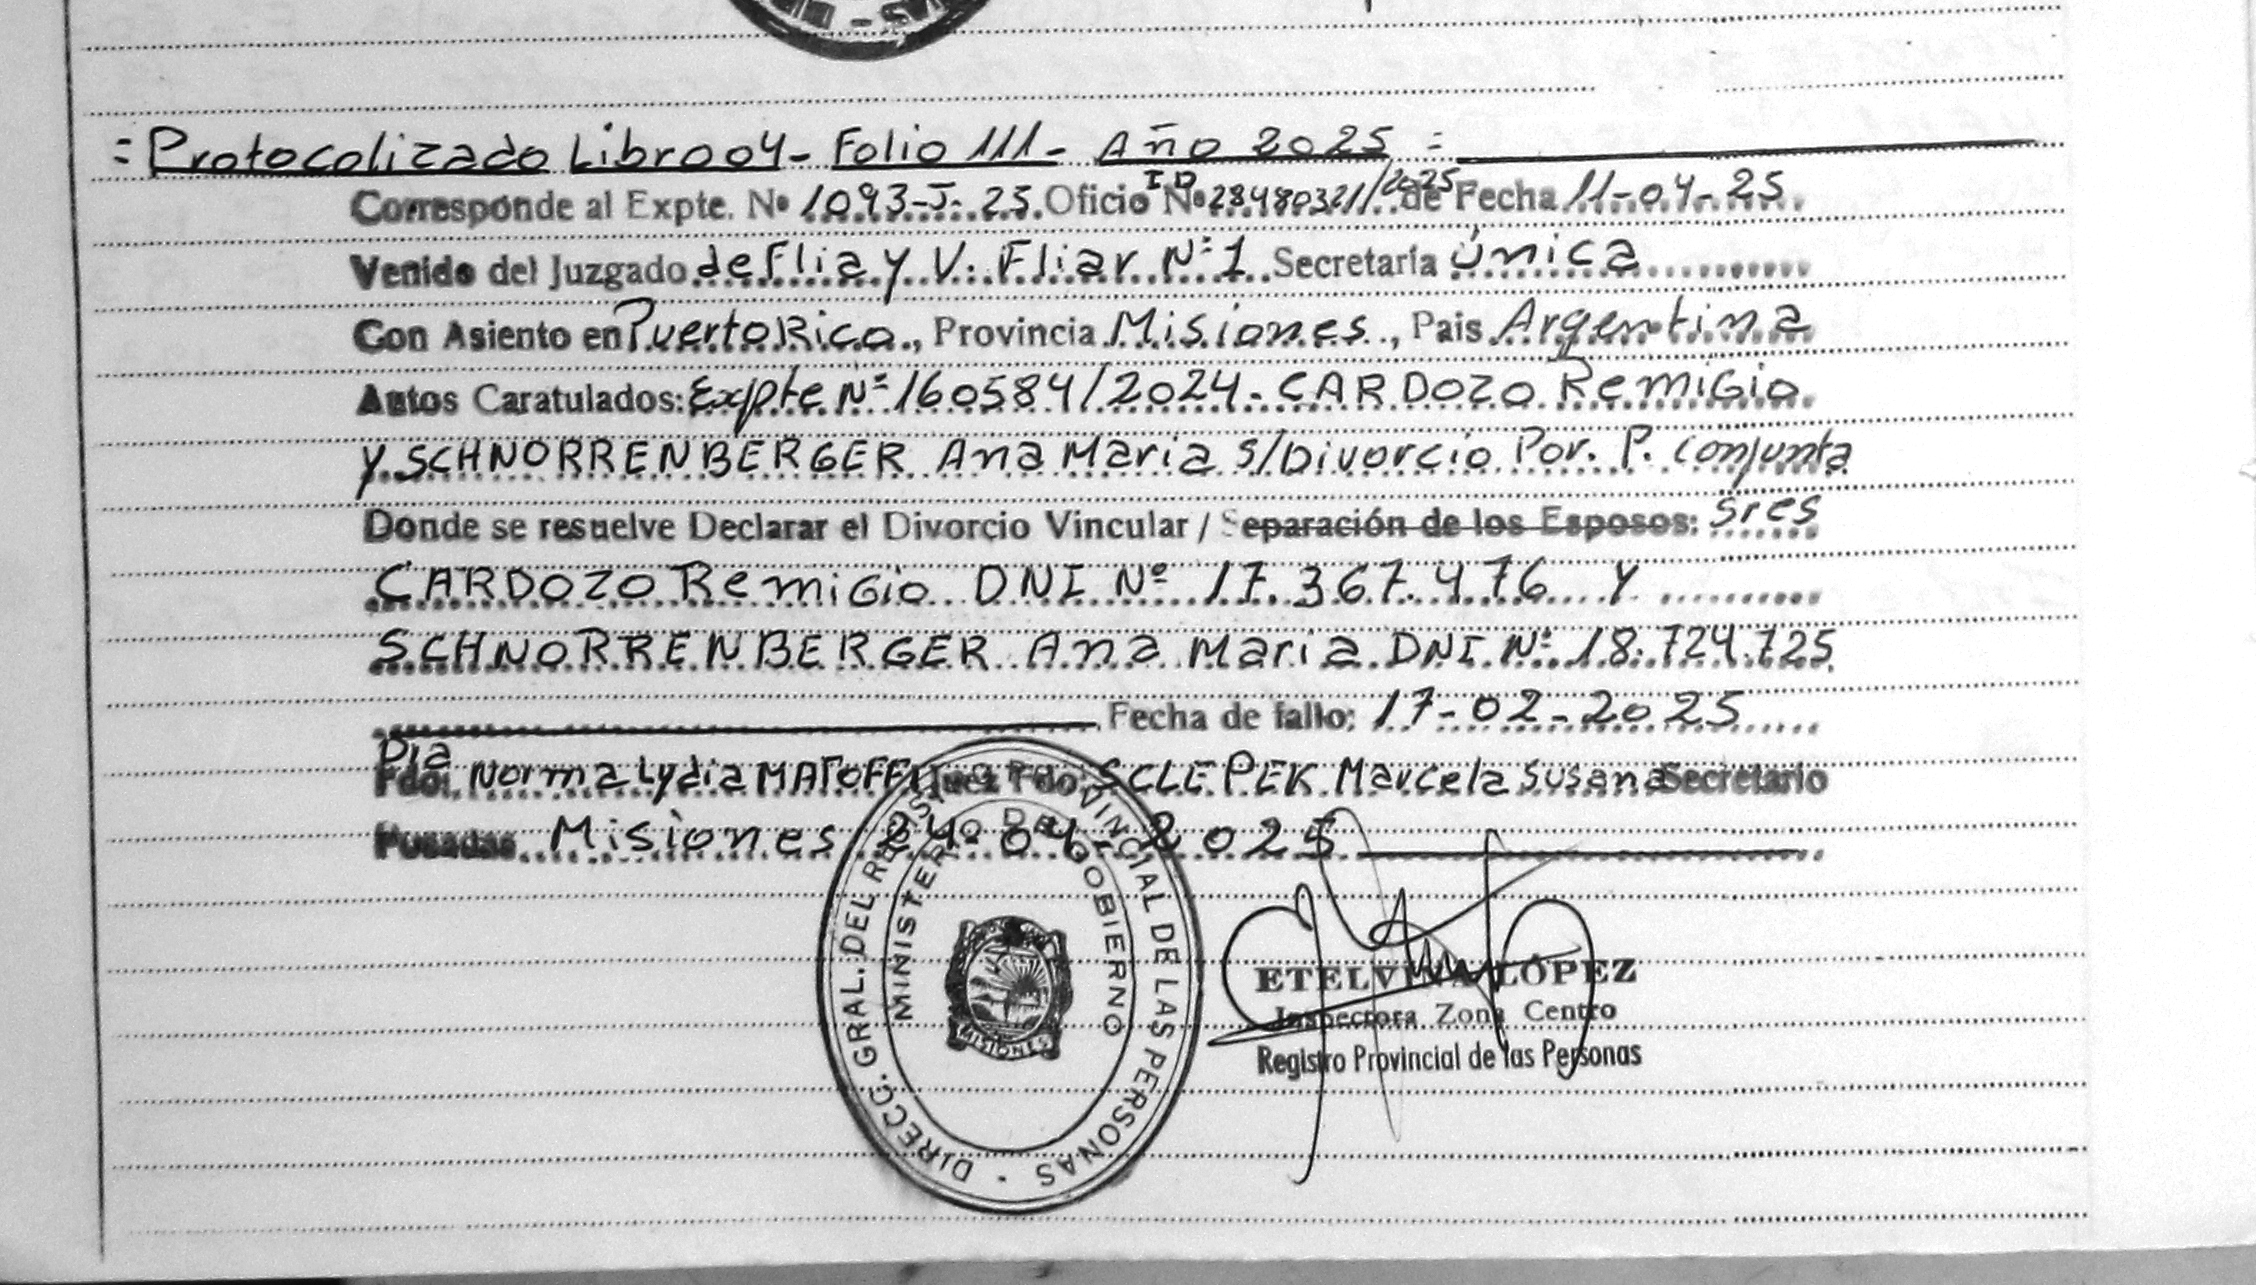 = Protocolizado Libro 04 - Folio 111 - Año 2025 =
Corresponde al Expte. Nº 1093-J-25. Oficio ID Nº 28480321/2025 de Fecha 11-04-25.
Venido del Juzgado de Flia y V. Fliar Nº 1. Secretaría única
Con Asiento en Puerto Rico, Provincia Misiones, Pais Argentina
Autos Caratulados: Expte Nº 160584/2024 - CARDOZO Remigio
y SCHNORRENBERGER Ana Maria s/Divorcio Por. P. conjunta
Donde se resuelve Declarar el Divorcio Vincular / Separación de los Esposos: Sres
CARDOZO Remigio DNI Nº 17.367.476 y
SCHNORRENBERGER Ana Maria DNI Nº 18.724.725
Fecha de fallo: 17-02-2025
Dra
Fdo. Norma Lydia Juez Fdo. SCLEPEK Marcela Susana Secretario
Posadas Misiones 24-04-2025
DIRECC. GRAL. DEL REGISTRO PROVINCIAL DE LAS PERSONAS
MINISTERIO DE GOBIERNO
MISIONES
ETELVINA LÓPEZ
Inspectora Zona Centro
Registro Provincial de las Personas